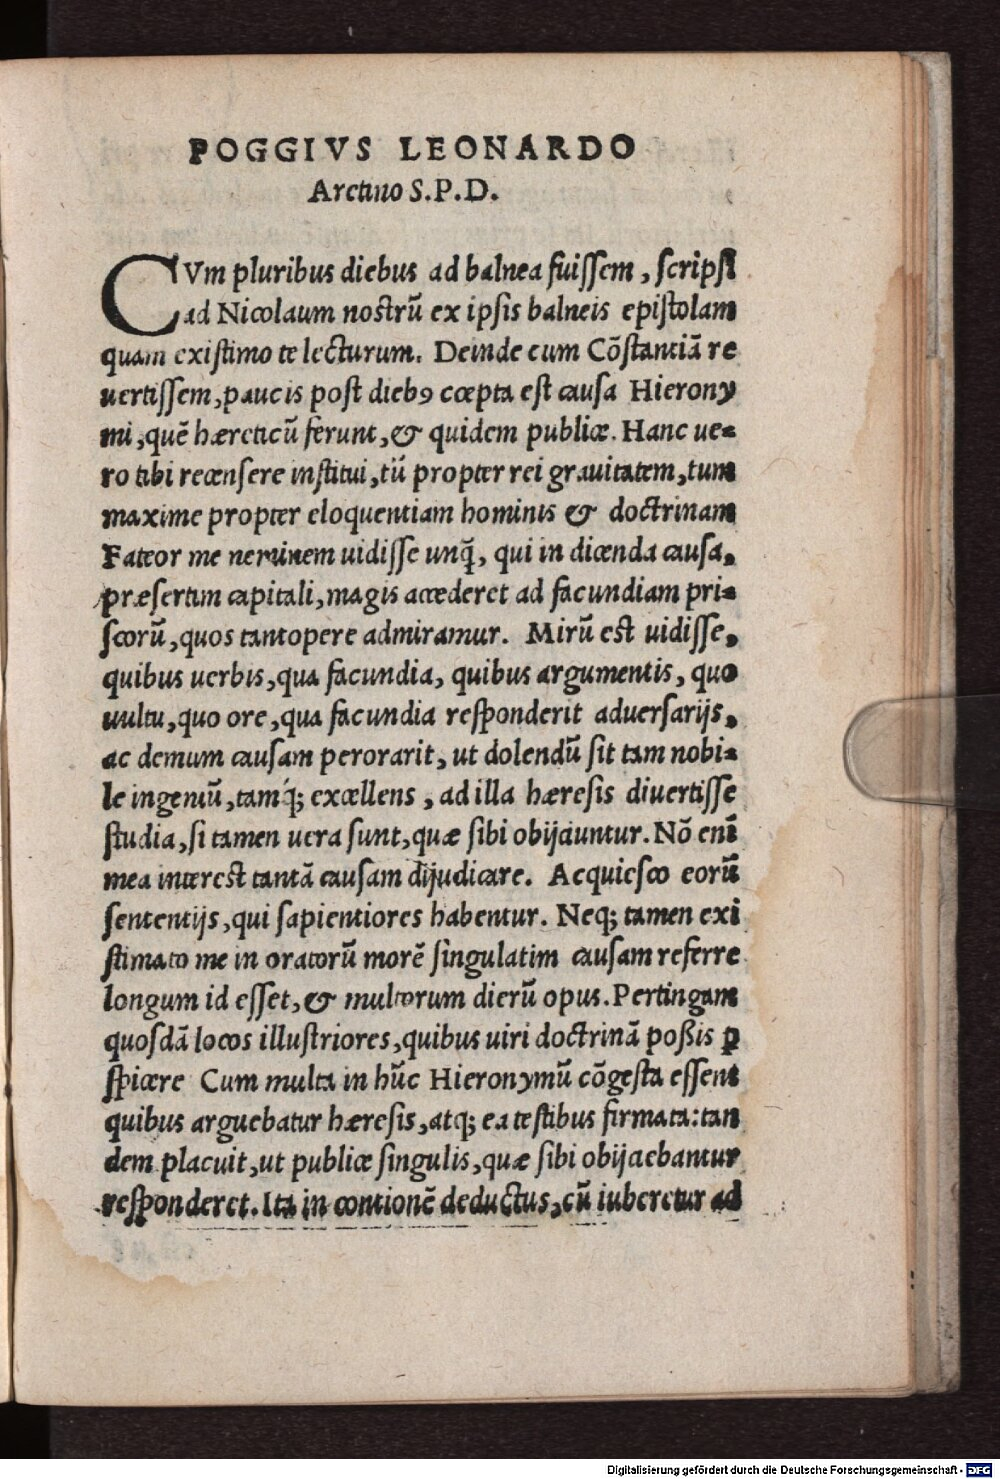 POGGIVS LEONARDO
Aretino S.P.D.
CVm pluribus diebus ad balnea fuiſſem, ſcripſi
ad Nicolaum nostrũ ex ipſis balneis epiſtolam
quam exiſtimo te lecturum. Deinde cum Cõſtantiã re
uertiſſem, paucis poſt dieb9 cœpta eſt cauſa Hierony
mi, quẽ hæreticũ ferunt, & quidem publice. Hanc ue-
ro tibi recenſere inſtitui, tũ propter rei grauitatem, tum
maxime propter eloquentiam hominis & doctrinam
Fateor me neminem uidiſſe unq̃, qui in dicenda cauſa,
præſertim capitali, magis accederet ad facundiam pri-
ſcorũ, quos tantopere admiramur. Mirũ est uidiſſe,
quibus uerbis, qua facundia, quibus argumentis, quo
uultu, quo ore, qua facundia reſponderit aduerſarijs,
ac demum cauſam perorarit, ut dolendũ ſit tam nobi-
le ingeniũ, tamq́; excellens, ad illa hæreſis diuertiſſe
ſtudia, ſi tamen uera ſunt, quæ ſibi obijciuntur. Nõ enĩ
mea interest tantã cauſam dijudicare. Acquieſco eorũ
ſententijs, qui ſapientiores habentur. Neq; tamen exi
ſtimato me in oratorũ morẽ ſingulatim cauſam referre
longum id eſſet, & multorum dierũ opus. Pertingam
quoſdã locos illuſtriores, quibus uiri doctrinã poßis ꝑ
ſpicere Cum multa in hũc Hieronymũ cõgeſta eſſent
quibus arguebatur hæreſis, atq; ea teſtibus firmata: tan
dem placuit, ut publice ſingulis, quæ ſibi obijciebantur
reſponderet. Ita in contionẽ deductus, cũ iuberetur ad
Digitalisierung gefördert durch die Deutsche Forschungsgemeinschaft - DFG